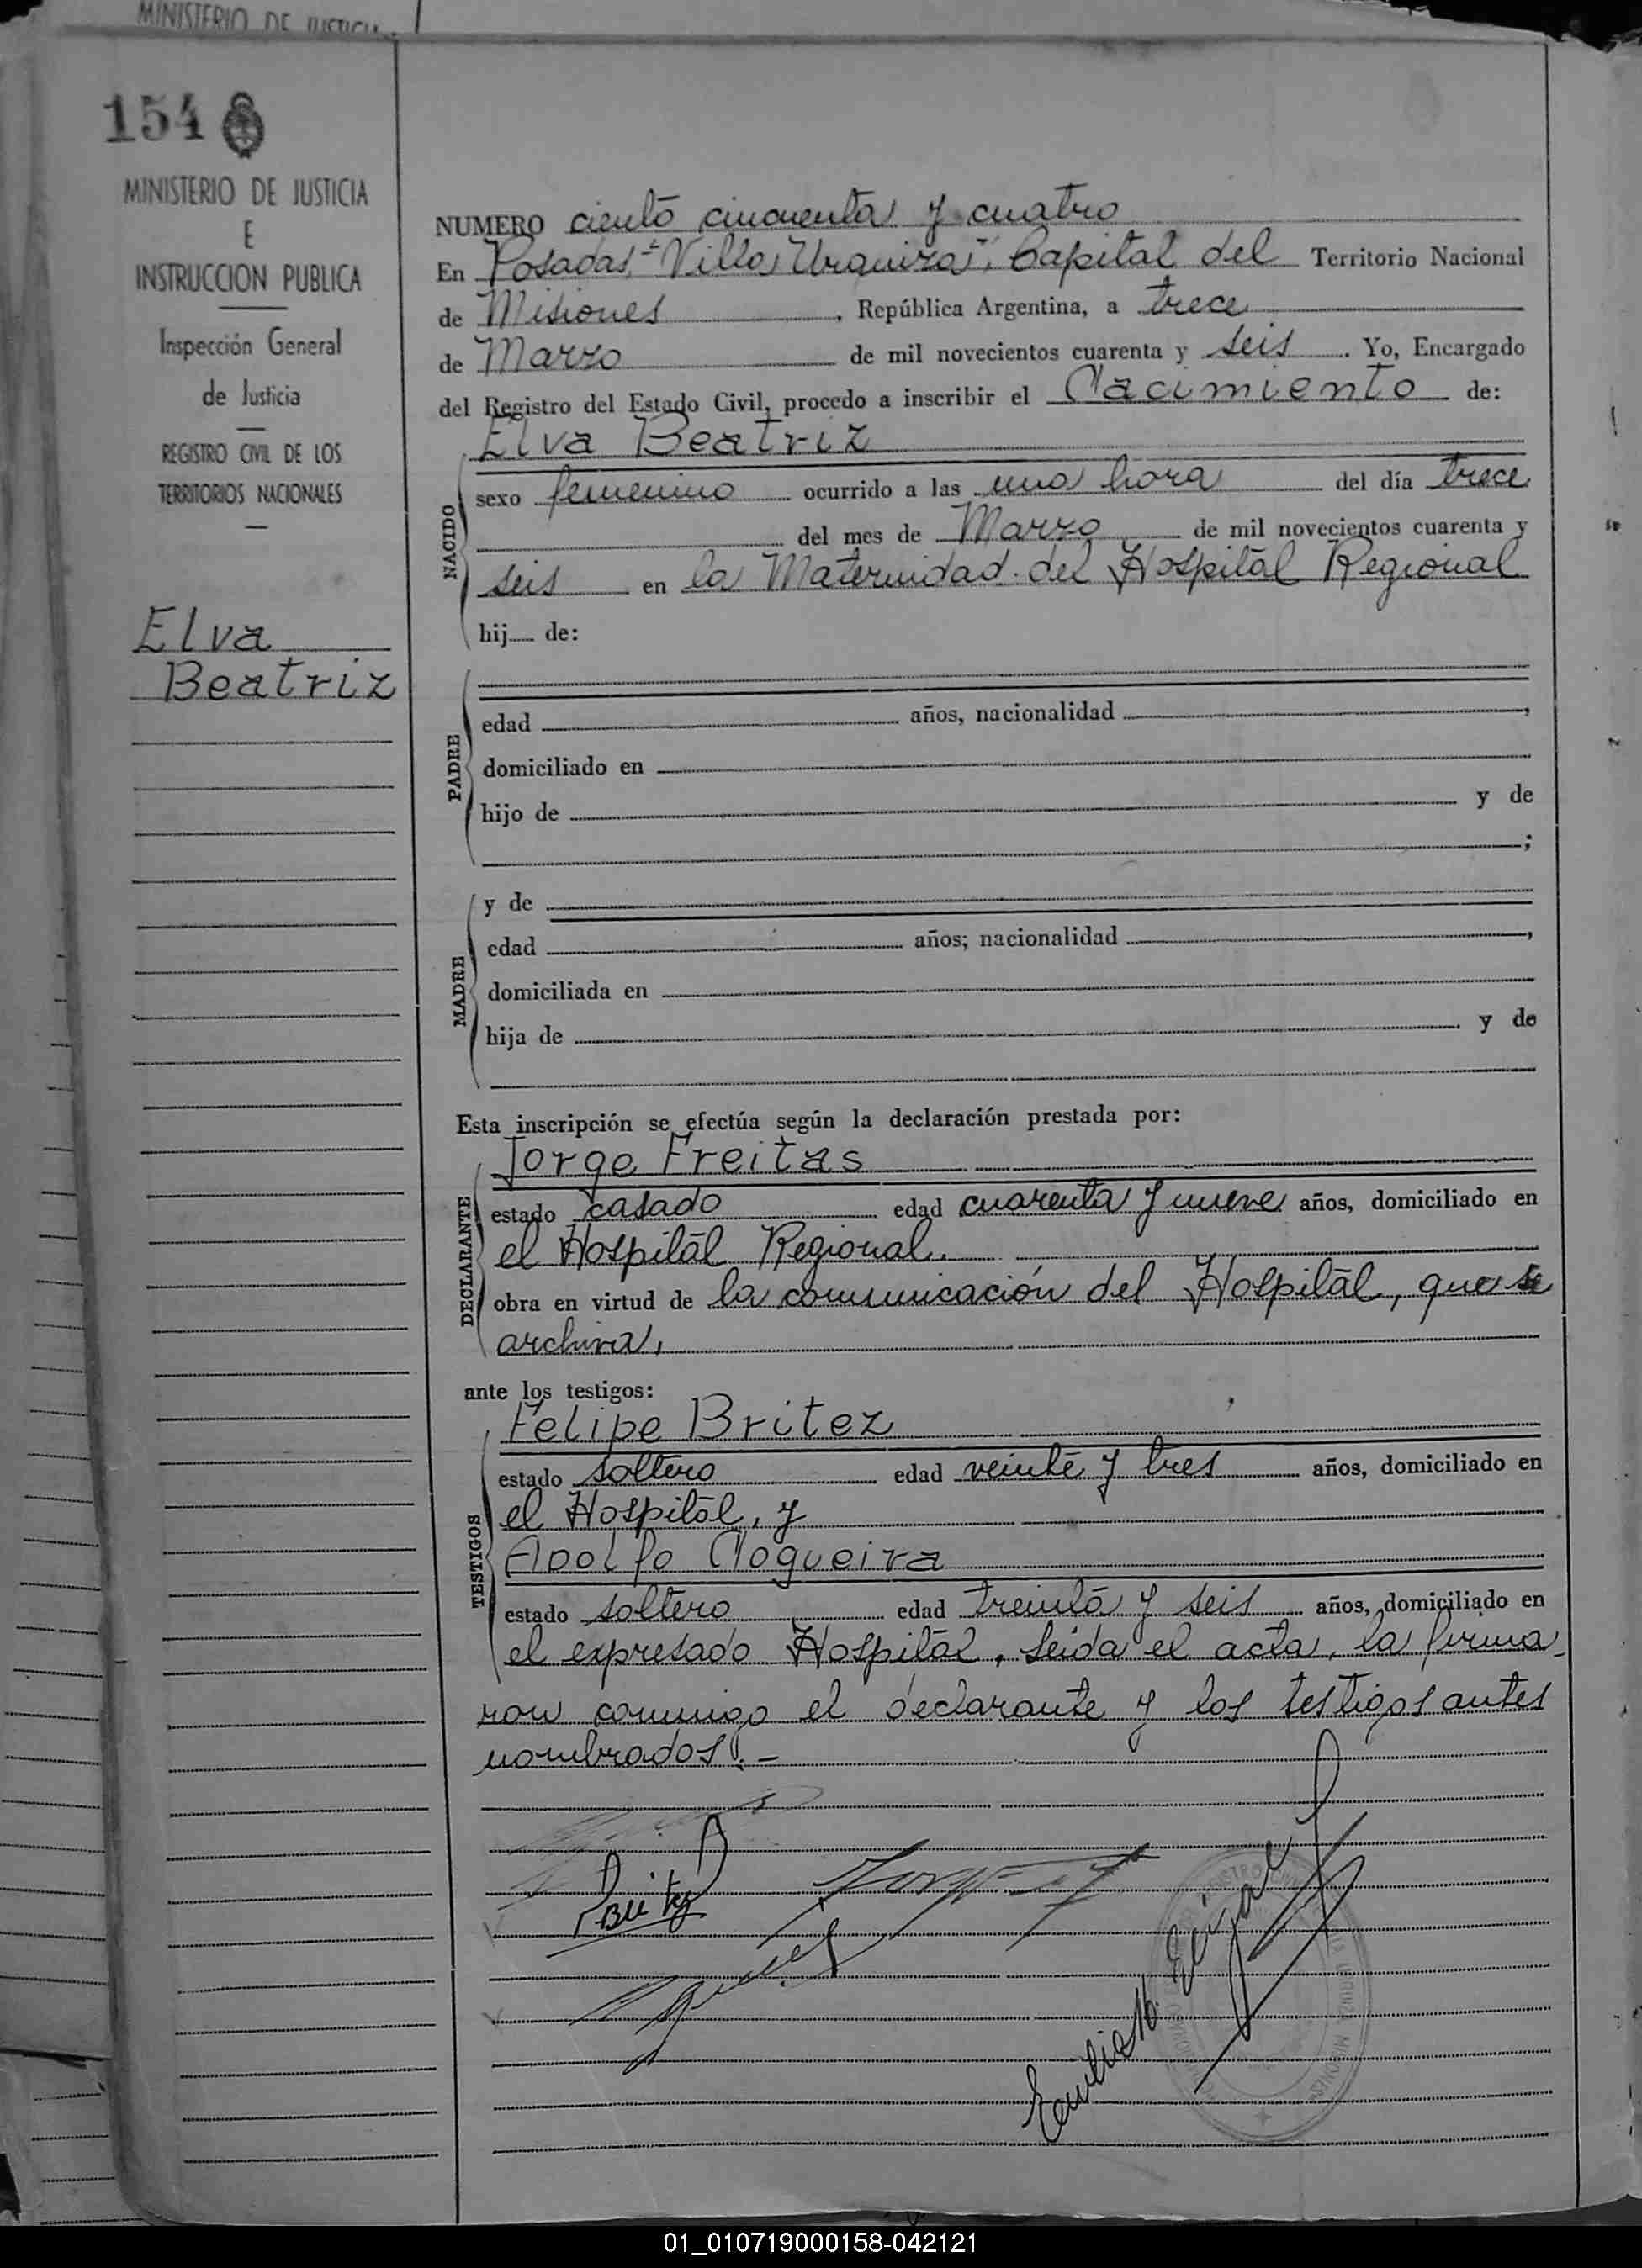 MINISTERIO DE JUSTICIA
154
MINISTERIO DE JUSTICIA
E
INSTRUCCION PUBLICA
Inspección General
de Justicia
REGISTRO CIVIL DE LOS
TERRITORIOS NACIONALES
Elva
Beatriz
NUMERO ciento cincuenta y cuatro
En Posadas, "Villa Urquiza", Capital del Territorio Nacional
de Misiones, República Argentina, a trece
de Marzo de mil novecientos cuarenta y seis. Yo, Encargado
del Registro del Estado Civil, procedo a inscribir el Nacimiento de:
Elva Beatriz
NACIDO
sexo femenino ocurrido a las una hora del día trece
del mes de Marzo de mil novecientos cuarenta y
seis en la Maternidad del Hospital Regional
hij de:
PADRE
edad años, nacionalidad ,
domiciliado en
hijo de y de
;
MADRE
y de
edad años; nacionalidad ,
domiciliada en
hija de y de
Esta inscripción se efectúa según la declaración prestada por:
Jorge Freitas
DECLARANTE
estado casado edad cuarenta y nueve años, domiciliado en
el Hospital Regional.
obra en virtud de la comunicación del Hospital, que se
archiva,
ante los testigos:
Felipe Britez
TESTIGOS
estado soltero edad veinte y tres años, domiciliado en
el Hospital, y
Adolfo Nogueira
estado soltero edad treinta y seis años, domiciliado en
el expresado Hospital. Leída el acta, la firma
ron conmigo el declarante y los testigos antes
nombrados.-
Britez
01_010719000158-042121